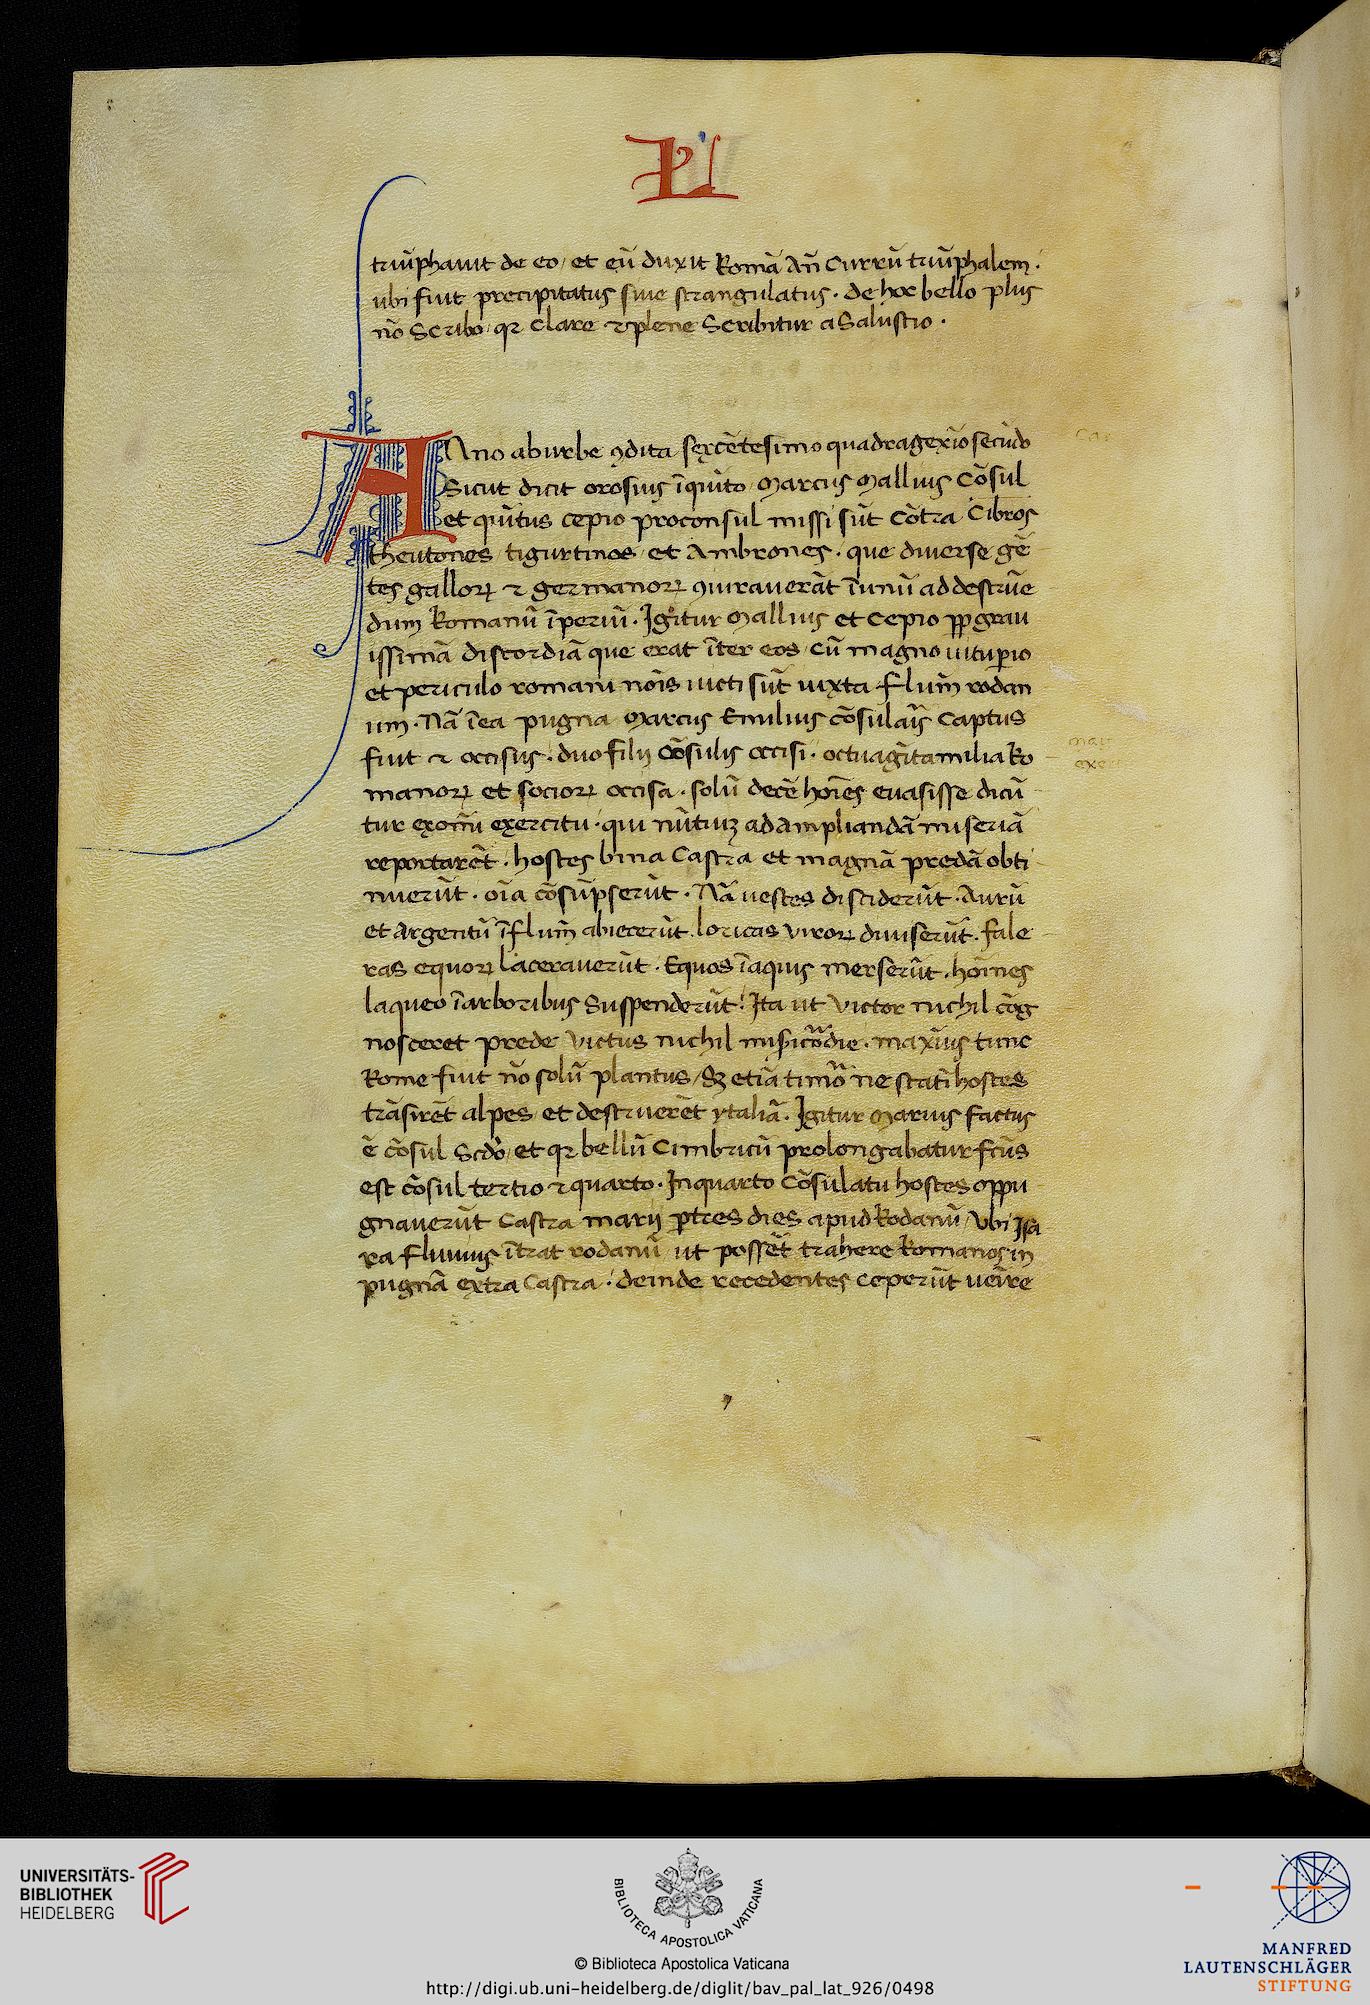 LI
triūphavit de eo / et eū duxit Romā Añ Currū triūphalem ·
ubi fuit precipitatus sive strangulatus · de hoc bello plus
nō Scribo / qꝛ clare ⁊ plene Scribitur a Salustio ·
Anno ab urbe ꝯdita sexcētesimo quadragexīo secūdo
Sicut dicit orosius ī quīto / Marcus Mallius Cōsul
et quītus cepio proconsul missi sūt Cōtra Cībros
theutones / tigurtinos / et Ambrones · que diverse gē
tes galloꝝ ⁊ germanoꝝ ꝯiuraverāt ī unū ad destrūe
dum Romanū īperiū · Igitur Mallius et Cepio ꝓp grau
issimā discordiā que erat īter eos / cū magno vituꝑio
et periculo romani nōis victi sūt iuxta flum̄ rodan
um · Nā ī ea pugna Marcus Emilius cōsularis Captus
fuit ⁊ occisus · duo filii cōsulis occisi · octuagīta milia Ro
manoꝝ et socioꝝ occisa · solū decē hoīes evasisse dicū
tur ex omī exercitu · qui nūtiuꝫ ad ampliandā miseriā
reportarēt · hostes bina Castra et magnā predā obti
nuerūt · oīa cōsūpserūt · Nā vestes disciderūt · Aurū
et Argentū ī flum̄ abiecerūt · loricas viroꝝ diviserūt · fale
ras equoꝝ laceraverūt · Equos ī aquis merserūt · hoīnes
laqueo ī arboribus Suspenderūt / Ita ut Victor nichil cōg
nosceret prede Victus nichil misicōdie · maxīus tunc
Rome fuit nō solū plantus / Sꝫ etiā timō ne statī hostes
trāsirēt alpes / et destruerēt ytaliā · Igitur Marius factus
ē cōsul Scdō / et qꝛ bellū Cimbricū prolongabatur fcūs
est cōsul tertio ⁊ quarto · In quarto Cōsulatu hostes oppu
gnaverūt Castra marii ꝑ tres dies apud Rodanū / Vbi Isa
ra fluvius ītrat rodanū / ut possēt trahere Romanos in
pugnā extra Castra · deinde recedentes ceperūt veīre
UNIVERSITÄTS-
BIBLIOTHEK
HEIDELBERG
BIBLIOTECA APOSTOLICA VATICANA
© Biblioteca Apostolica Vaticana
http://digi.ub.uni-heidelberg.de/diglit/bav_pal_lat_926/0498
MANFRED
LAUTENSCHLÄGER
STIFTUNG